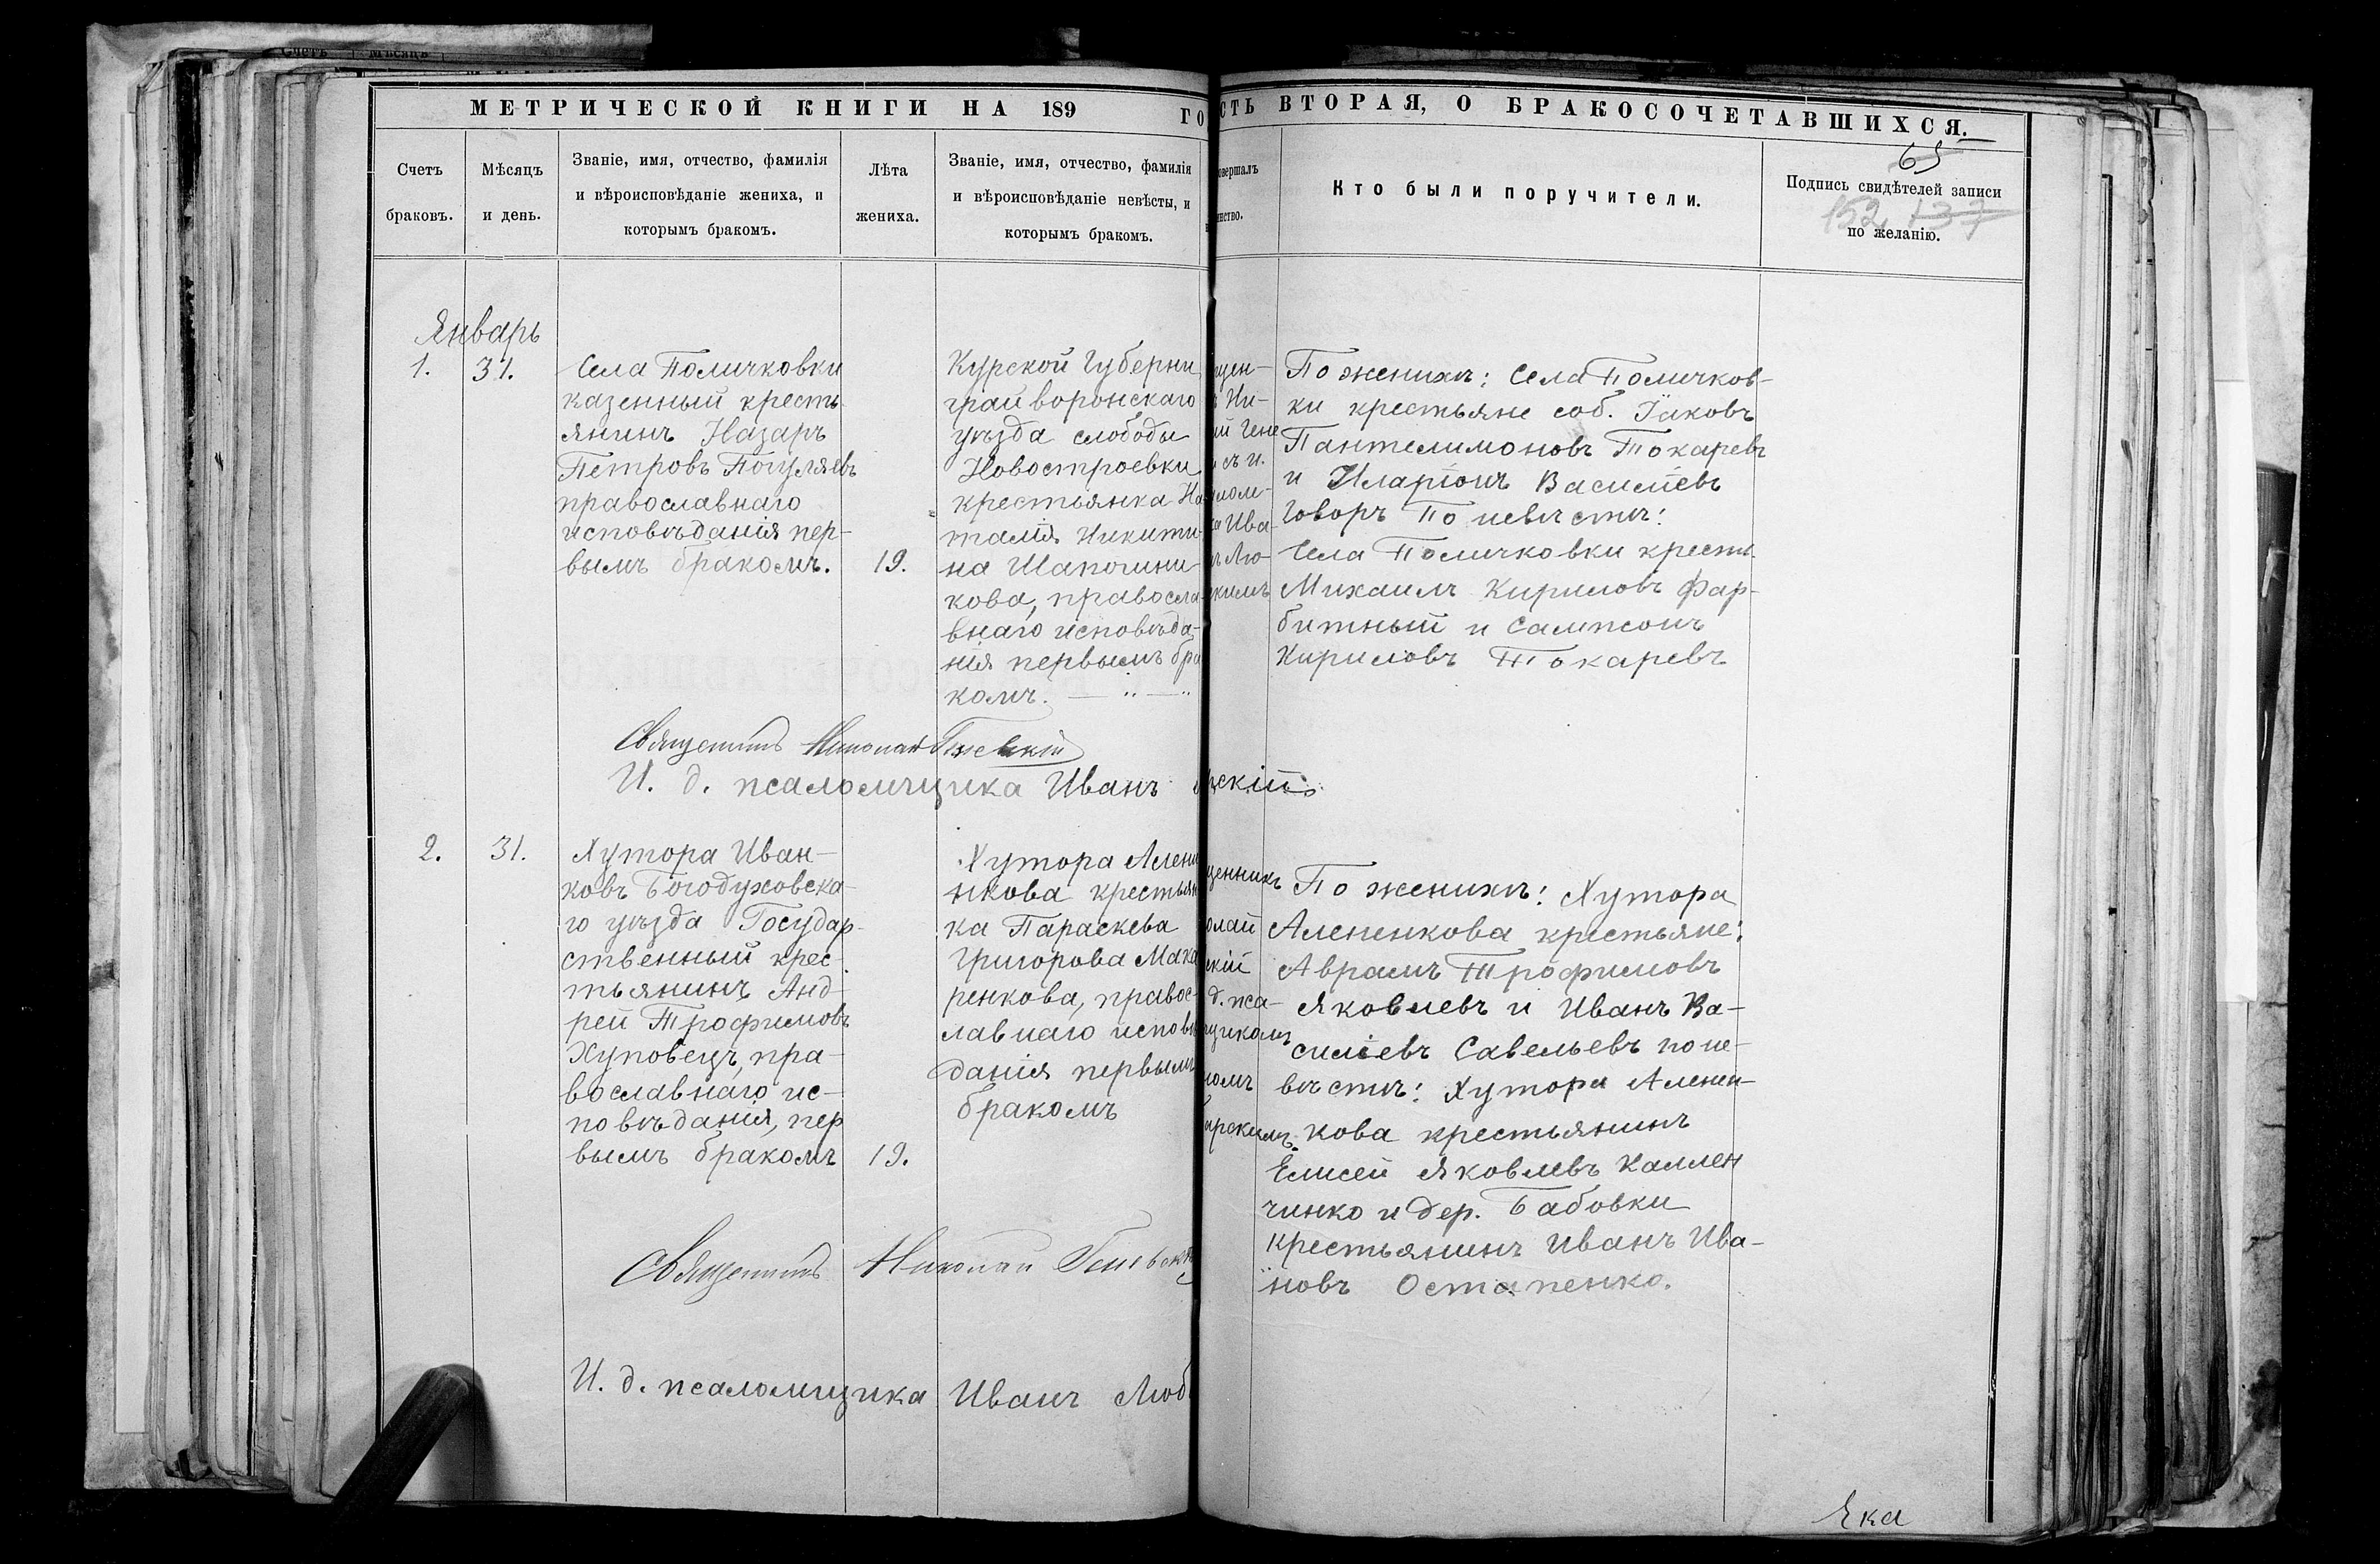 Счетъ Мѣсяцъ
МЕТРИЧЕСКОЙ КНИГИ НА 189 ГО
СТЬ ВТОРАЯ, О БРАКОСОЧЕТАВШИХСЯ.
Счетъ
браковъ.
Мѣсяцъ
и день.
Званіе, имя, отчество, фамилія
и вѣроисповѣданіе жениха, и
которымъ бракомъ.
Лѣта
жениха.
Званіе, имя, отчество, фамилія
и вѣроисповѣданіе невѣсты, и
которымъ бракомъ.
овершалъ
инство.
Кто были поручители.
65
Подпись свидѣтелей записи
152 137
по желанію.
Январь
1. 31.
Села Поличковки
казенный кресть
янинъ Назаръ
Петровъ Погуляевъ
православнаго
исповѣданія пер-
вымъ бракомъ. 19.
Курской Губерни
грайворонскаго
уѣзда слободы
Новостроевки
крестьянка На
талія Никити-
на Шапошни-
кова, правосла-
внаго исповѣда-
нія первымъ бра
комъ. — " — "
щен-
ъ Ни-
ий Гене
и съ и.
лом-
ка Ива-
ъ Лю-
скимъ
По женихѣ: Села Поличков-
ки крестьяне соб. Іаковъ
Пантелимоновъ Токаревъ
и Иларіонъ Василіевъ
Говоръ По невѣстѣ:
Села Поличковки кресть
Михаилъ Кириловъ Фар-
битный и Сампсонъ
Кириловъ Токаревъ
Священникъ Николай
И. д. псаломщика Иванъ рскій
2. 31.
Хутора Иван-
ковъ Богодуховска-
го уѣзда Государ-
ственный крес-
тьянинъ Анд-
рей Трофимовъ
Хуповецъ, пра-
вославнаго ис-
повѣданія, пер
вымъ бракомъ 19.
Хутора Алени
нкова крестьян
ка Параскева
Григорова Мака
ренкова, правос-
лавнаго исповѣ
данія первымъ
бракомъ
щенникъ
олай
скій
д. пса-
щикомъ
номъ
арскимъ
По женихѣ: Хутора
Алененкова крестьяне:
Аврамъ Трофимовъ
Яковлевъ и Иванъ Ва-
силіевъ Савельевъ по не-
вѣстѣ: Хутора Аленен-
кова крестьянинъ
Елисей Яковлевъ Каллен
чинко и дер. Бабовки
крестьянинъ Иванъ Ива-
новъ Остапенко.
Священникъ Николай
И. д. псаломщика Иванъ Люб
Ека